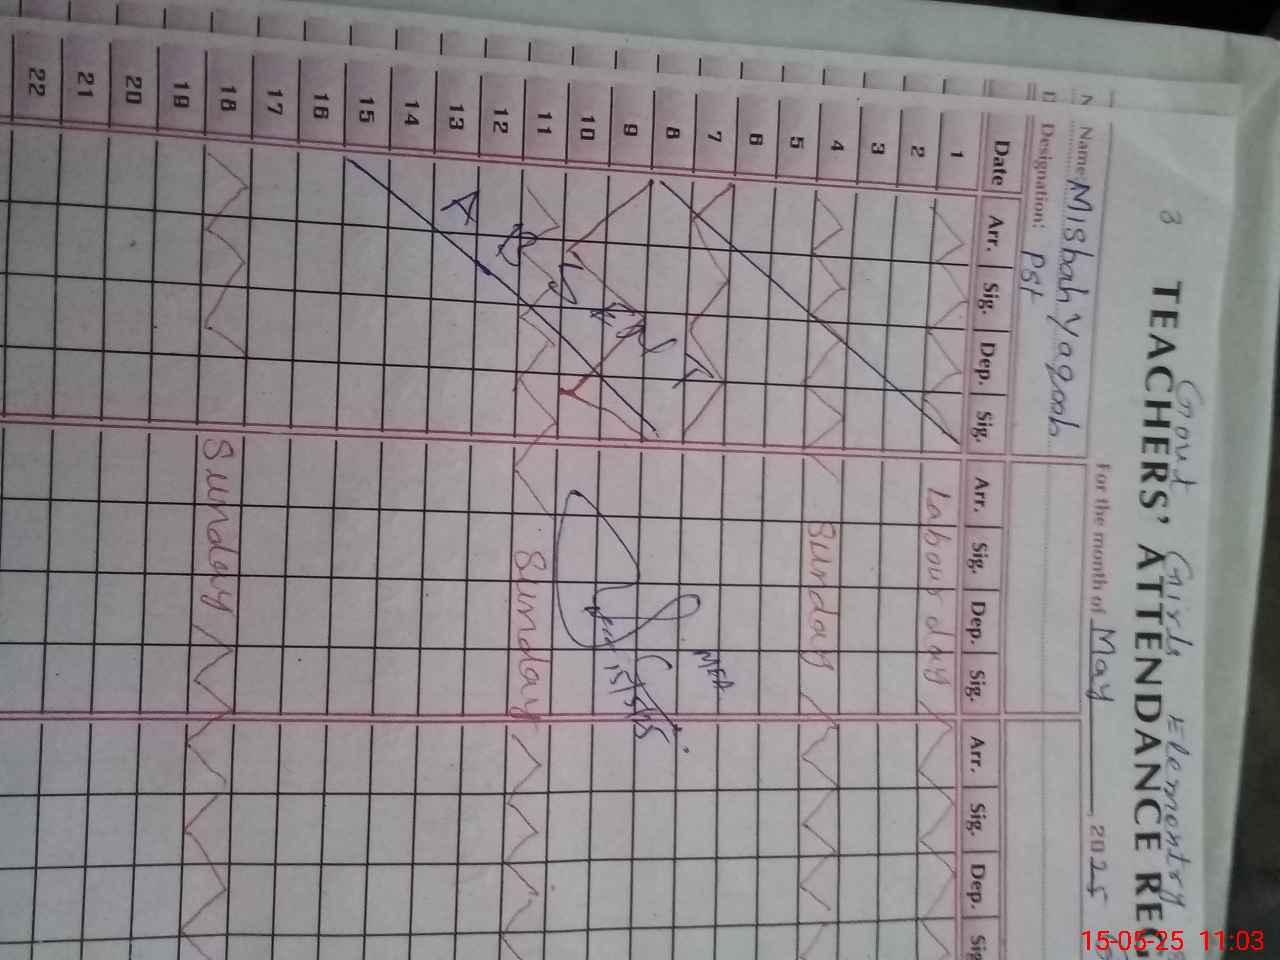 3 Govt Girls Elementry
TEACHERS' ATTENDANCE REG
Name: Misbah Yaqoob For the month of May, 2025
Designation: PST
Date Arr. Sig. Dep. Sig. Arr. Sig. Dep. Sig. Arr. Sig. Dep. Sig
1 Labour day
2
3
4 Sunday
5
6
7
8 MEA
9
10 15/5/25
11 Sunday
12
13
14
15
16
17
18 Sunday
19
20
21
22
15-05-25 11:03